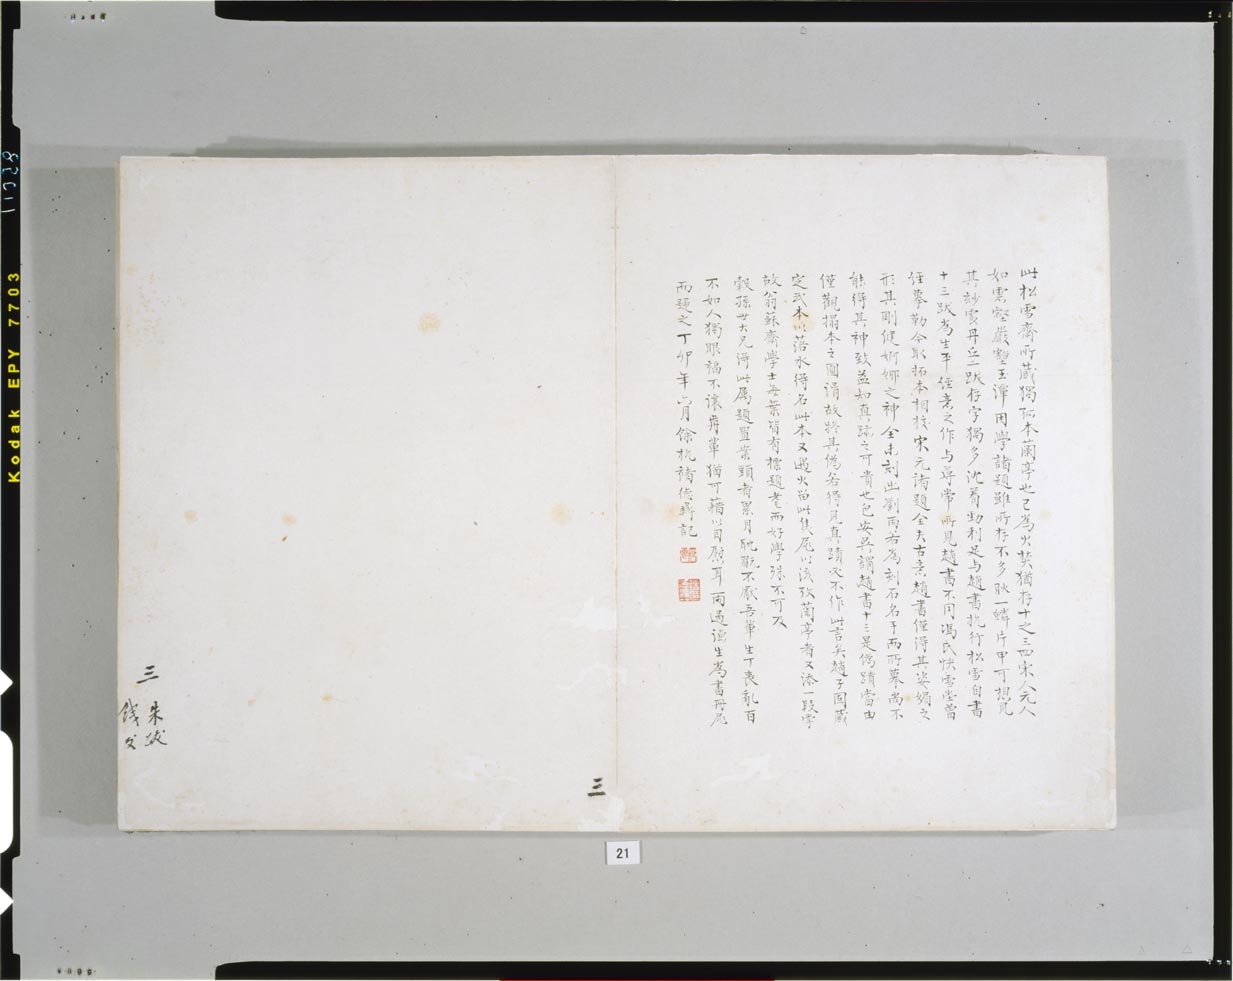 此松雪齋所藏獨孤本蘭亭也已為火焚猶存十之三四宋人元人
如雲壑嚴壑王 用學諸題雖所存不多耿一鱗片甲可想見
其妙處丹丘二跋存字獨多沈着勁利足与趙書抗行松雪自書
十三跋為生平經意之作与尋常所見趙書不同馮氏快雪堂曾
經摹勒今取拓本相校宋元諸題全失古意趙書僅得其姿媚之
形其剛健婀娜之神全未刻出劉雨若為刻石名手而所摹尚不
能得其神致益知真跡之可貴也包安吳謂趙書十三是偽蹟當由
僅觀搨本之圓滑故將其偽若得見真蹟必不作此言矣趙子固藏
定武本以落水得名此本又遇火留此隻尾以後攷蘭亭者又添一段掌
故翁蘇齋學士每葉皆有標題耄而好學殊不可及
穀孫世大兄得此属題置案頭者累月耽翫不厭吾輩生丁喪亂百
不如人獨眼福不讓前輩猶可藉以自慰耳雨過涼生為書冊尾
而題之丁卯年六月餘杭褚德彝記
三
朱跋
錢公
三
21
Kodak EPY 7703
11028